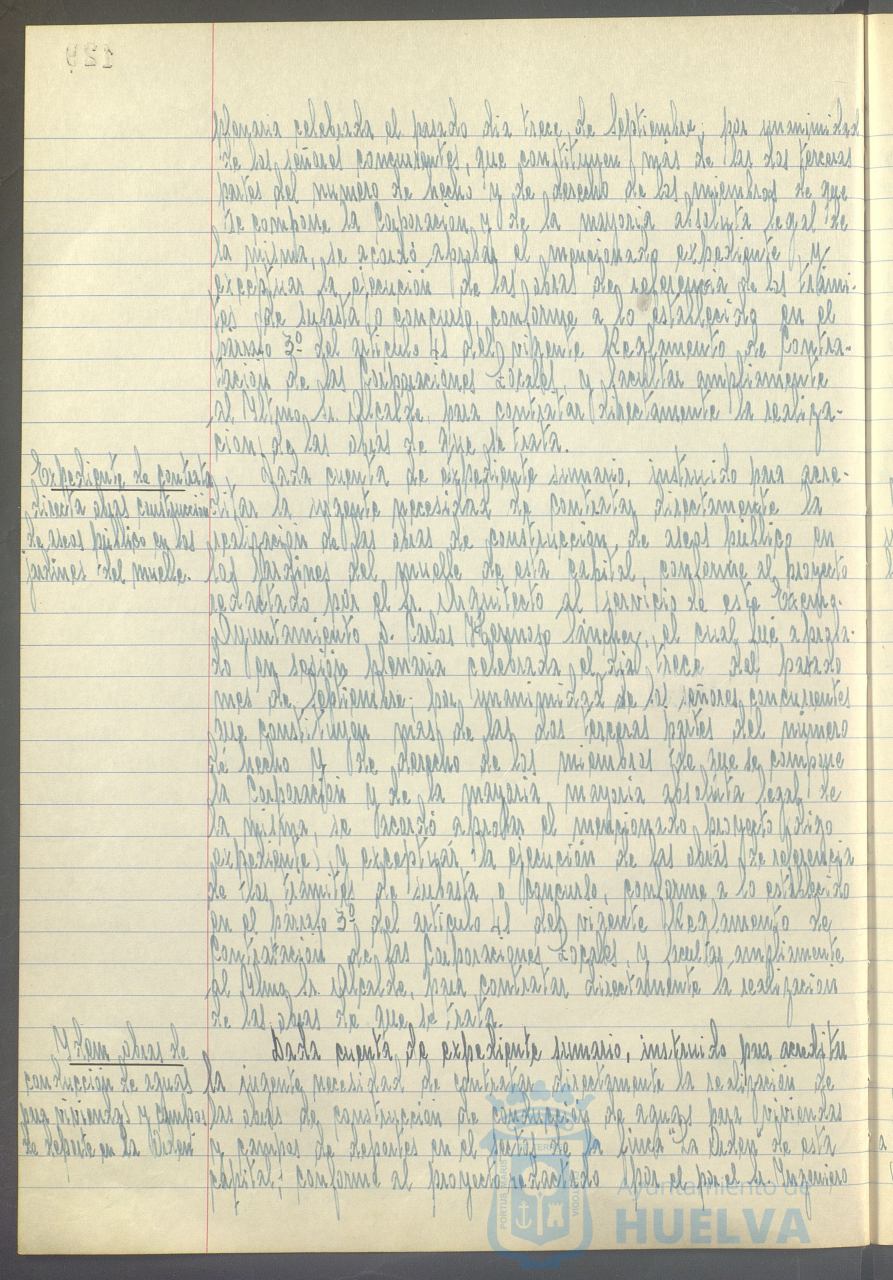 129
plenaria celebrada el pasado dia trece, de Septiembre; por unanimidad
de los señores concurrentes, que constituyen más de las dos terceras
partes del numero de hecho y de derecho de los miembros de que
se compone la Corporacion y de la mayoria absoluta legal de
la misma, se acordó aprobar el mencionado expediente, y
exceptuar la ejecucion de las obras de referencia de los trámi-
tes de subasta o concurso, conforme a lo establecido en el
párrafo 3º del articulo 41 del vigente Reglamento de Contra-
tacion de las Corporaciones Locales, y facultar ampliamente
al Iltmo. Sr. Alcalde, para contratar directamente la realiza-
cion de las obras de que se trata.
Expediente de contrata
directa obras construccion
de aseos público en los
jardines del muelle.
Dada cuenta de expediente sumario, instruido para acre-
ditar la urgente necesidad de contratar directamente la
realizacion de las obras de construccion, de aseos público en
los Jardines del muelle de esta capital, conforme al proyecto
redactado por el Sr. Arquitecto al servicio de este Excmo.
Ayuntamiento D. Carlos Hermoso Sánchez, el cual fué aproba-
do en sesión plenaria celebrada el dia trece del pasado
mes de Septiembre; por unanimidad de los señores concurrentes
que constituyen mas de las dos terceras partes del número
de hecho y de derecho de los miembros de que se compone
la Corporacion y de la mayoria mayoria absoluta legal de
la misma, se acordó aprobar el mencionado proyecto digo
expediente, y exceptuar la ejecución de las obras de referencia
de los trámites de subasta o concurso, conforme a lo establecido
en el párrafo 3º del articulo 41 del vigente Reglamento de
Contratacion de las Corporaciones Locales, y facultar ampliamente
al Iltmo. Sr. Alcalde, para contratar directamente la realizacion
de las obras de que se trata.
Ydem, obras de
conduccion de aguas
para viviendas y campos
de deporte en la Orden
Dada cuenta de expediente sumario, instruido para acreditar
la urgente necesidad de contratar directamente la realizacion de
las obras de construccion de conduccion de aguas para viviendas
y campos de deportes en el sector de la finca "La Orden" de esta
capital; conforme al proyecto redactado por el por el Sr. Ingeniero
Ayuntamiento de
HUELVA